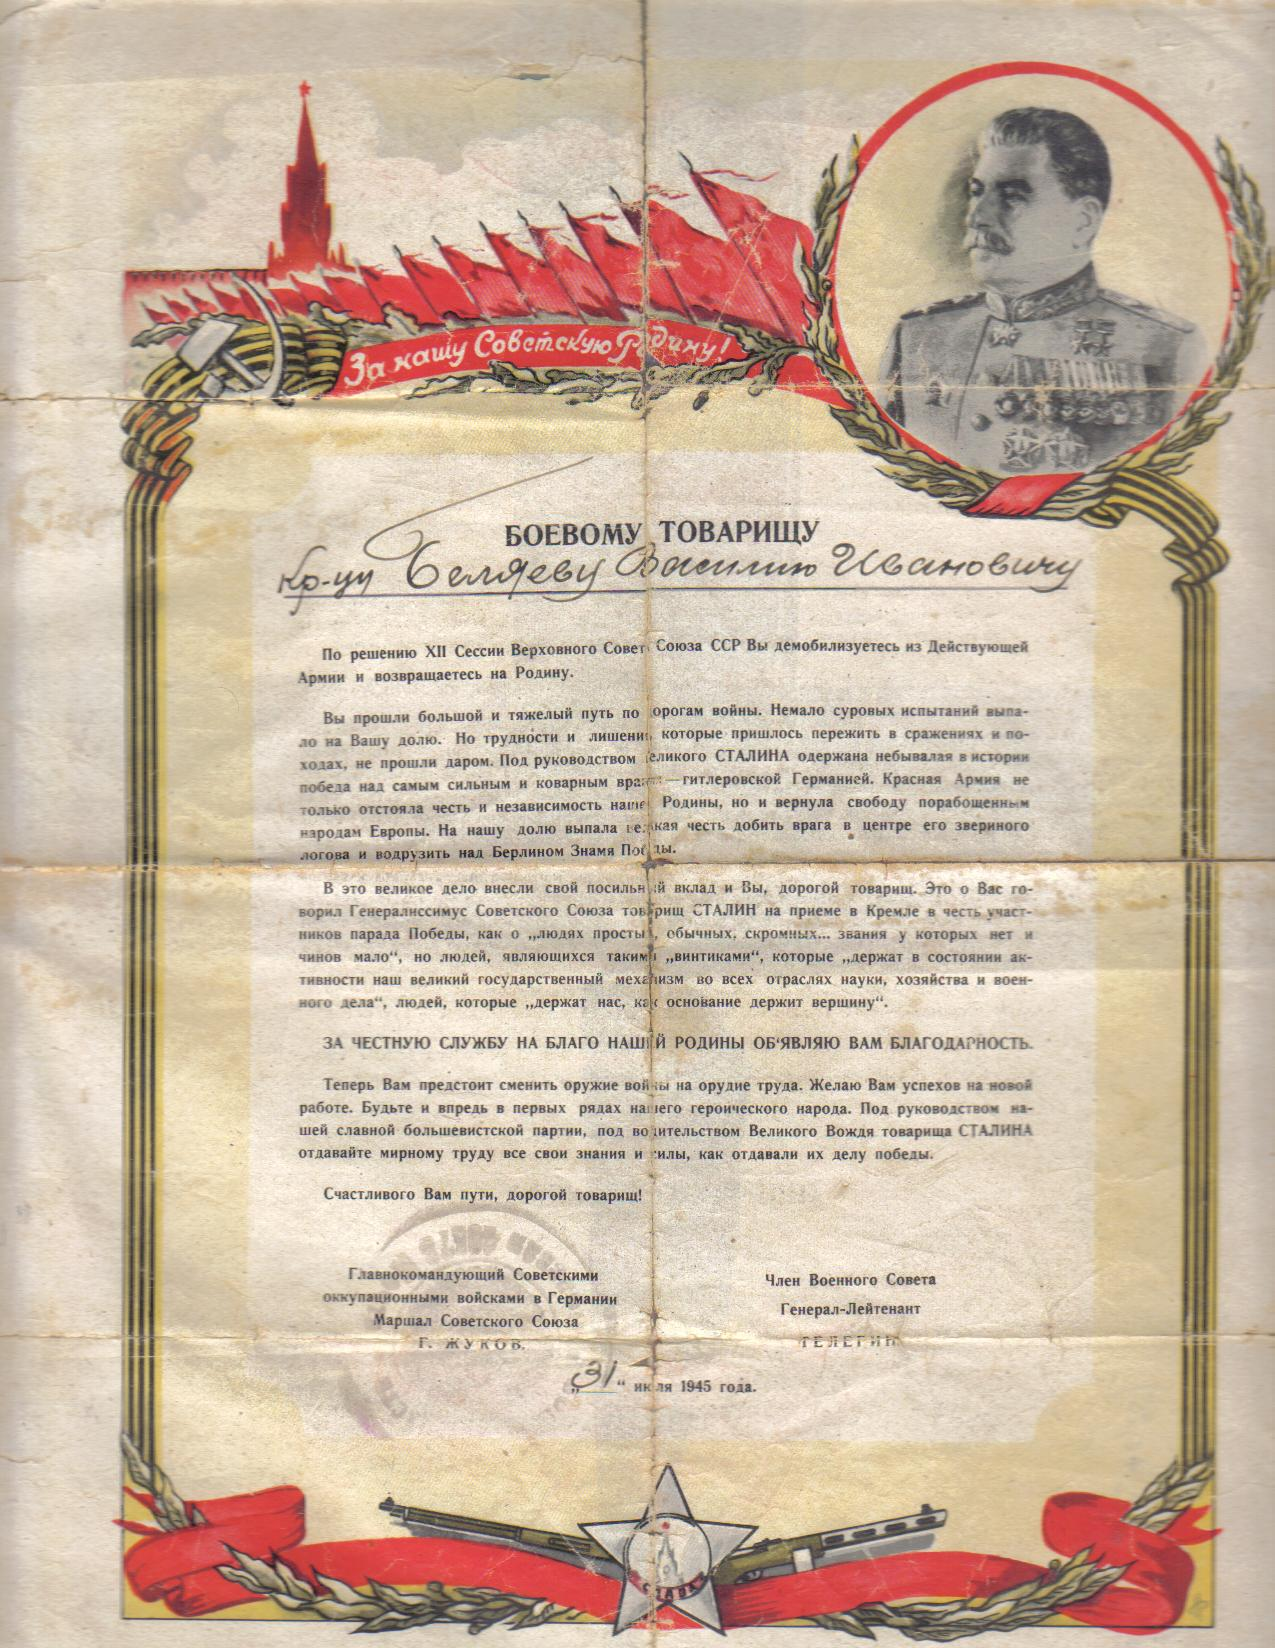 За нашу Советскую Родину!
БОЕВОМУ ТОВАРИЩУ
кр-цу Беляеву Василию Ивановичу
По решению XII Сессии Верховного Совет Союза ССР Вы демобилизуетесь из Действующей
Армии и возвращаетесь на Родину.
Вы прошли большой и тяжелый путь по дорогам войны. Немало суровых испытаний выпа-
ло на Вашу долю. Но трудности и лишения, которые пришлось пережить в сражениях и по-
ходах, не прошли даром. Под руководством великого СТАЛИНА одержана небывалая в истории
победа над самым сильным и коварным врагом—гитлеровской Германией. Красная Армия не
только отстояла честь и независимость нашей Родины, но и вернула свободу порабощенным
народам Европы. На нашу долю выпала великая честь добить врага в центре его звериного
логова и водрузить над Берлином Знамя Победы.
В это великое дело внесли свой посильный вклад и Вы, дорогой товарищ. Это о Вас го-
ворил Генералиссимус Советского Союза товарищ СТАЛИН на приеме в Кремле в честь участ-
ников парада Победы, как о „людях простых, обычных, скромных... звания у которых нет и
чинов мало“, но людей, являющихся такими „винтиками“, которые „держат в состоянии ак-
тивности наш великий государственный механизм во всех отраслях науки, хозяйства и воен-
ного дела“, людей, которые „держат нас, как основание держит вершину“.
ЗА ЧЕСТНУЮ СЛУЖБУ НА БЛАГО НАШЕЙ РОДИНЫ ОБ‘ЯВЛЯЮ ВАМ БЛАГОДАРНОСТЬ.
Теперь Вам предстоит сменить оружие войны на орудие труда. Желаю Вам успехов на новой
работе. Будьте и впредь в первых рядах нашего героического народа. Под руководством на-
шей славной большевистской партии, под водительством Великого Вождя товарища СТАЛИНА
отдавайте мирному труду все свои знания и силы, как отдавали их делу победы.
Счастливого Вам пути, дорогой товарищ!
Главнокомандующий Советскими
оккупационными войсками в Германии
Маршал Советского Союза
Г. ЖУКОВ.
Член Военного Совета
Генерал-Лейтенант
ТЕЛЕГИН.
„31“ июля 1945 года.
СЛАВА